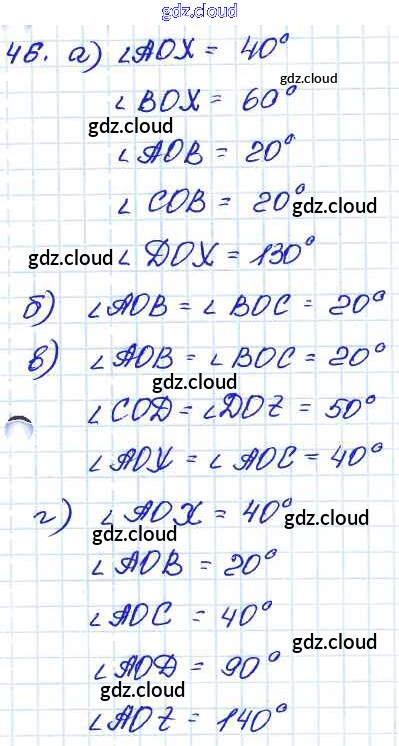 gdz.cloud
46. а) ∠AOX = 40°
gdz.cloud
∠BOX = 60°
gdz.cloud
∠AOB = 20°
∠COB = 20°
gdz.cloud
gdz.cloud ∠DOX = 130°
б) ∠AOB = ∠BOC = 20°
в) ∠AOB = ∠BOC = 20°
gdz.cloud
∠COD = ∠DOZ = 50°
∠AOX = ∠AOC = 40°
г) ∠AOX = 40°
gdz.cloud
gdz.cloud
∠AOB = 20°
∠AOC = 40°
gdz.cloud
∠AOD = 90°
gdz.cloud
∠AOZ = 140°